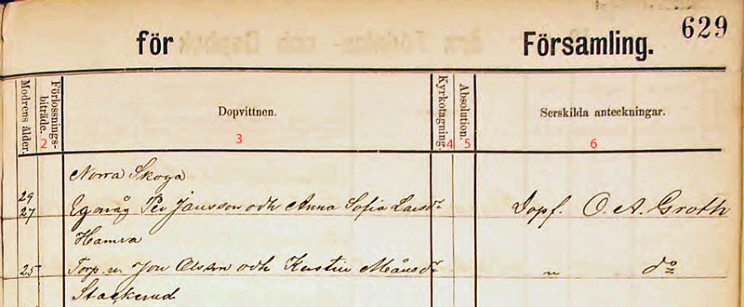 629
för Församling.
Modrens ålder.
Förlossnings-
biträde.
Dopvittnen.
Kyrkotagning.
Absolution.
Serskilda anteckningar.
2 3 4 5 6
Norra Skoga
29
27 Per Jansson och Anna Sofia Larsdr Dopf. O. A. Groth
Hamra
25 Torp. Jon Olsson och Kerstin Månsdr " do
Stackerud